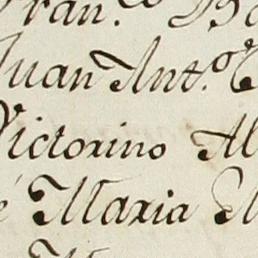 Fran.co
Juan Ant.o
Victorino Al
é Maria